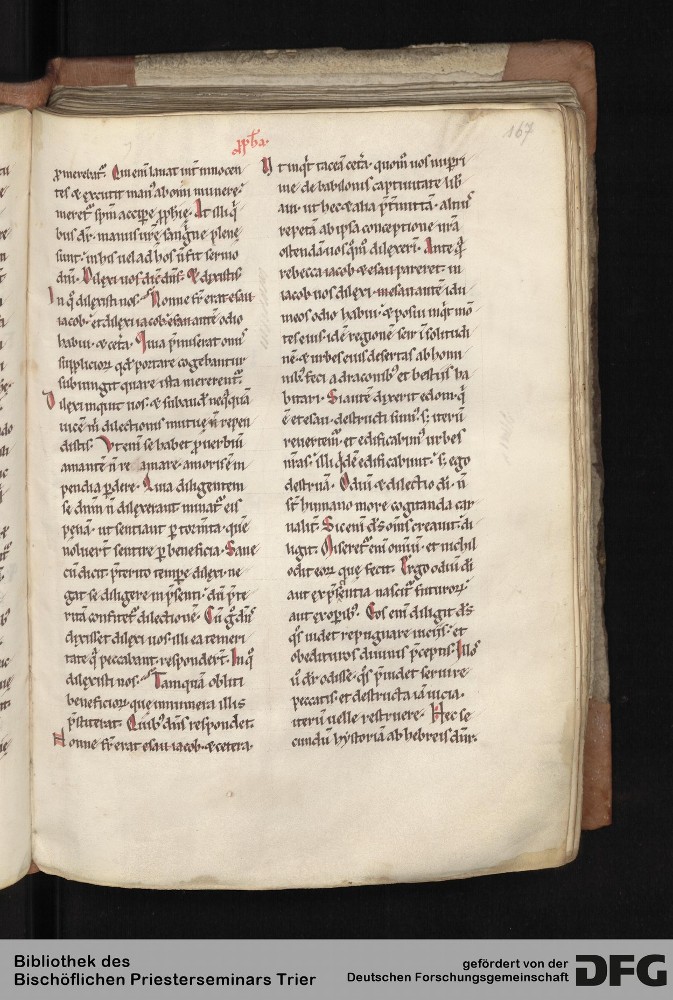 pphia
167
p̄mereatur. Qui enī lauat int̄ innocen
tes & excutit man᷒ ab omi munere.
meret᷑ sp̄m accipe pphię. At illi q̄
bus dr̄. manus urę sanguine plenę
sunt. in his uel ad hos n̄ fit sermo
dnī. Dilexi uos dic dn̄s. & dixistis
In q̄ dilexisti nos. Nonne fr̄ erat esau
iacob. et dilexi iacob esau autē odio
habui. & cet̄a. Quia p̄miserat om̄s
suppliciorū qd portare cogebantur
subiungit quare ista mererent᷑.
Dilexi inquit uos. & subaud̄ neq̄quā
uicē m̄ dilectionis mutuę n̄ repen
distis. Ut enī se habet puerbiū
amantē n̄ re amare. amoris ē in
pendia pdere. Quia diligentem
se dnm n̄ dilexerant minat᷑ eis
pęnā. ut sentiant p torm̄ta quē
noluert̄ sentire p beneficia. Suaue
cū dicit p̄terito tempe dilexi. ne
gat se diligere in p̄senti. dn̄ p̄te
ritā confitet᷑ dilectionē. Cū ḡ dn̄s
dixisset dilexi uos. illi ea temeri
tate q̄ peccabant. respondert̄. In q̄
dilexisti nos. Tamquā obliti
beneficiorū que innumera illis
p̄stiterat. Quib᷒ dn̄s respondet.
Nonne fr̄ erat esau iacob. & cetera.
Ut inq̄t taceā cet̄a. quom̄ uos nup̄ri
me de babilonis captiuitate lib̄
aui. ut hec & alia p̄t̄mittā. altius
repetā ab ipsa conceptione ur̄a
ostendā uos q̄m dilexerī. Ante q̄
rebecca iacob & esau pareret. in
iacob uos dilexi. in esau autē idu
meos odio habui. & posui inq̄t mō
tes eius. id ē regionē seir ī solitudi
nē. & urbes eius desertas ab homi
nib᷒ feci a draconib᷒ et bestiis ha
bitari. Si autē dixerit edom. q̄
ē et esau. destructi sum᷒. s; iterū
reuertem᷑. et edificabim᷒ urbes
nr̄as. illi q̄dē edificabunt. s; ego
destruā. Odiū & dilectio di. n̄
st̄ humano more cogitanda car
nalit᷑. Sic enī ds̄ om̄s creauit. di
ligit. Miseret᷑ enī omniū. et nichil
odit eorū que fecit. Ergo odiū di
aut ex p̄sentia nascit᷑ futurorū
aut ex opib᷒. Eos enī diligit ds̄
q̄s uidet repugnare uiciis. et
obedituros diuinis p̄ceptis. Illos
ū dr̄ odisse. q̄s p̄uidet seruire
peccatis. et destructa iā uicia.
iterū uelle restruere. Hec se
cundū hystoriā ab hebreis dn̄r.
Bibliothek des
Bischöflichen Priesterseminars Trier
gefördert von der
Deutschen Forschungsgemeinschaft
DFG